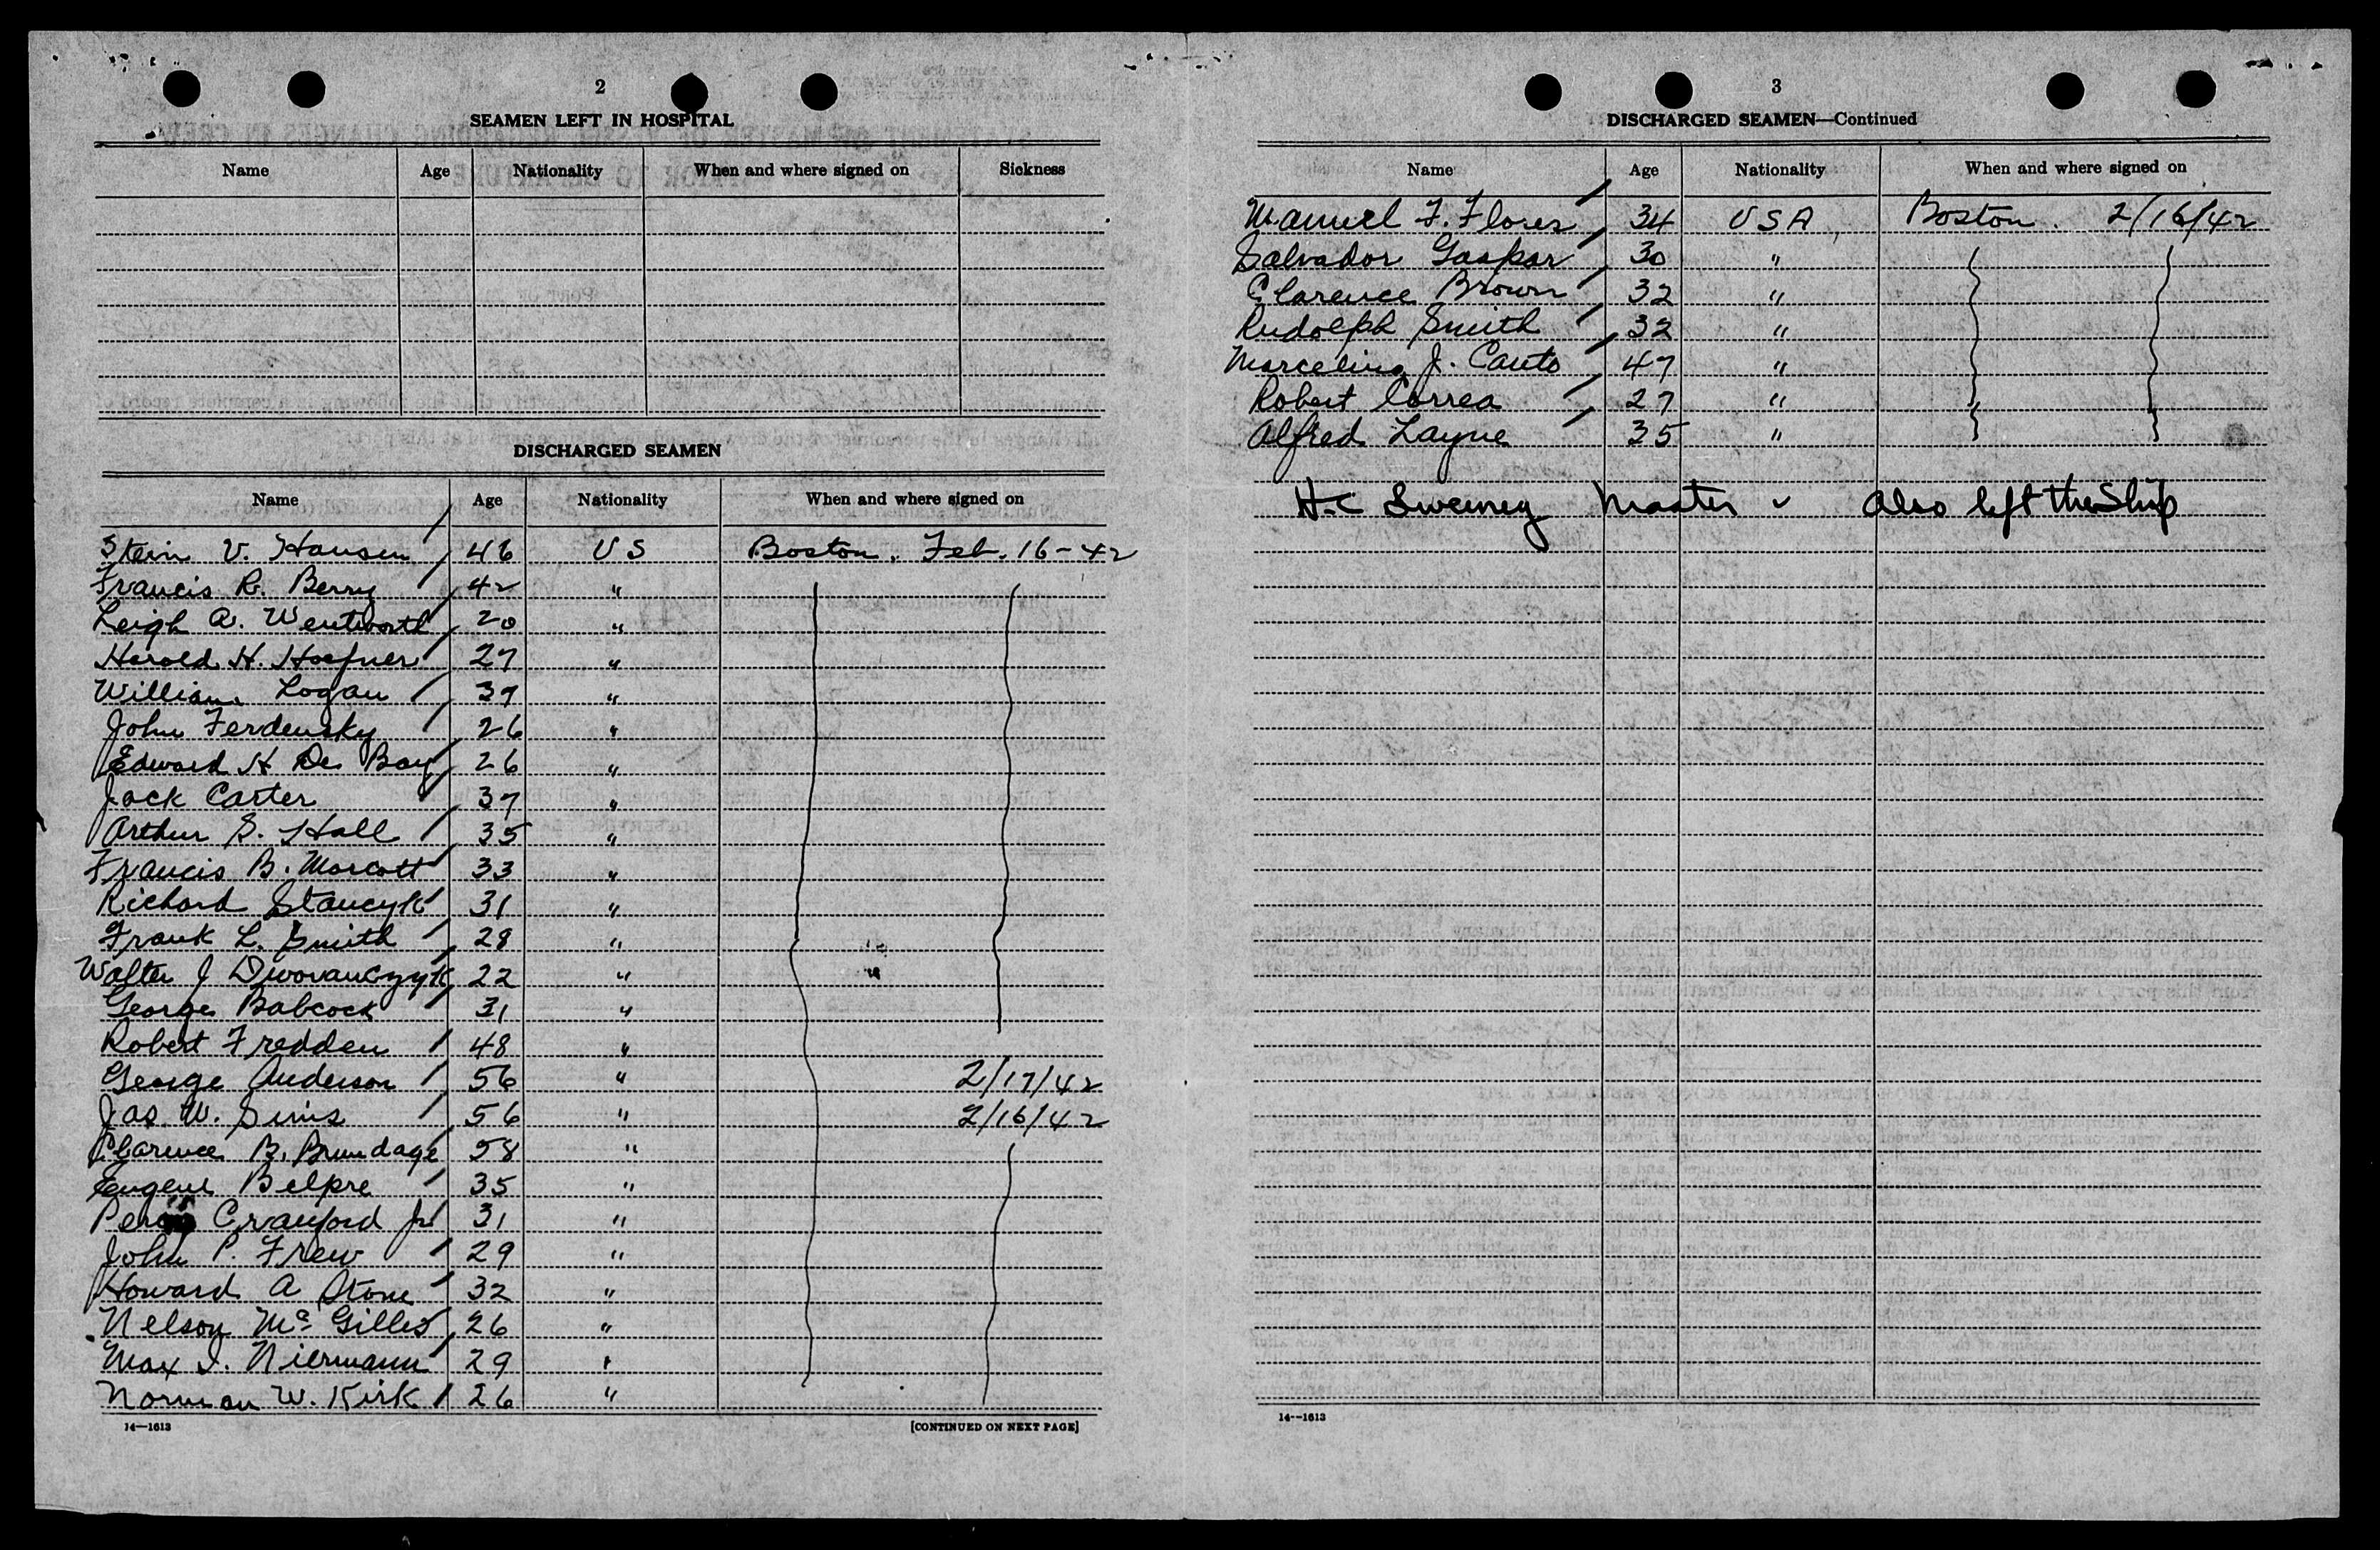 2
SEAMEN LEFT IN HOSPITAL
Name Age Nationality When and where signed on Sickness
DISCHARGED SEAMEN
Name Age Nationality When and where signed on
Stein V. Hansen 46 US Boston. Feb. 16-42
Francis R. Berry 42 "
Leigh A. Wentworth 20 "
Harold H. Hoefner 27 "
William Logan 37 "
John Ferdensky 26 "
Edward H De Bay 26 "
Jack Carter 37 "
Arthur S. Hall 35 "
Francis B. Morcott 33 "
Richard Stancyk 31 "
Frank L. Smith 28 "
Walter J Dworanczyk 22 "
George Babcock 31 "
Robert Fredden 48 "
George Anderson 56 " 2/17/42
Jas W. Sims 56 " 2/16/42
Clarence B. Brundage 58 "
Eugene Belpre 35 "
Crawford Jr 31 "
John P. Frew 29 "
Howard A Stone 32 "
Nelson Mc Gilles 26 "
Max I. Niermann 29 "
Norman W. Kirk 26 "
14—1613
[CONTINUED ON NEXT PAGE]
3
DISCHARGED SEAMEN—Continued
Name Age Nationality When and where signed on
Manuel F. Flores 34 USA Boston. 2/16/42
Salvador Gaspar 30 "
Clarence Brown 32 "
Rudolph Smith 32 "
Marcelino J. Couto 47 "
Robert Correa 27 "
Alfred Layne 35 "
H.C Sweeney Master ✓ Also left the Ship
14—1613